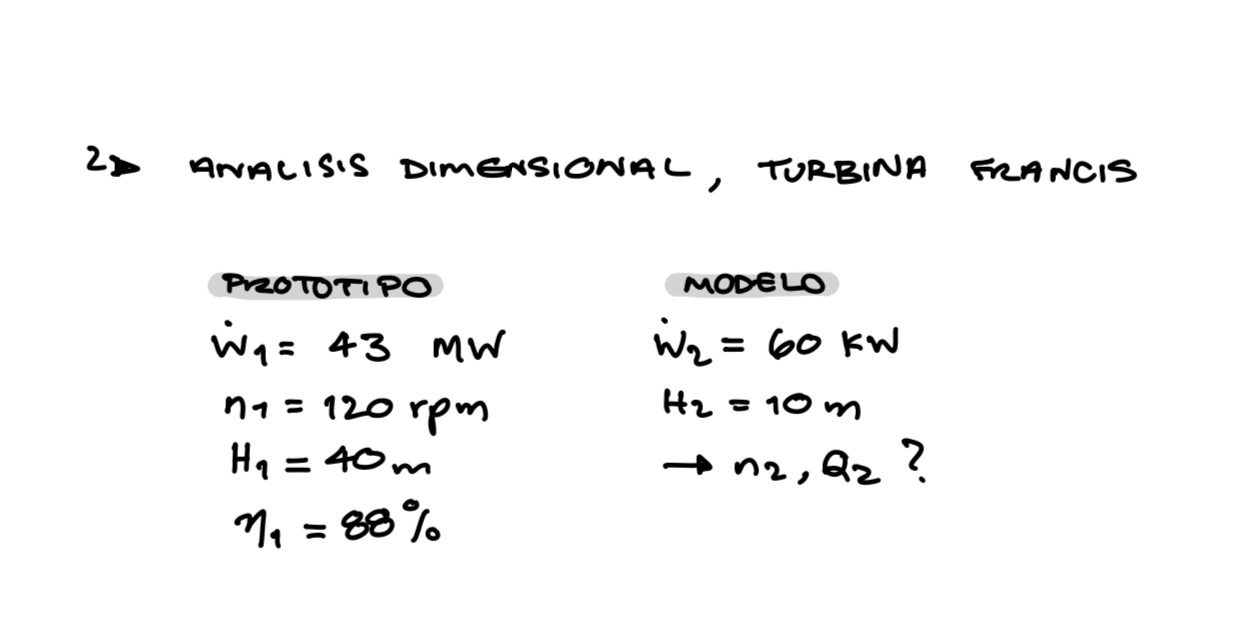 2▸ ANALISIS DIMENSIONAL, TURBINA FRANCIS
PROTOTIPO
Ẇ1 = 43 MW
n1 = 120 rpm
H1 = 40 m
η1 = 88%
MODELO
Ẇ2 = 60 KW
H2 = 10 m
→ n2, Q2 ?